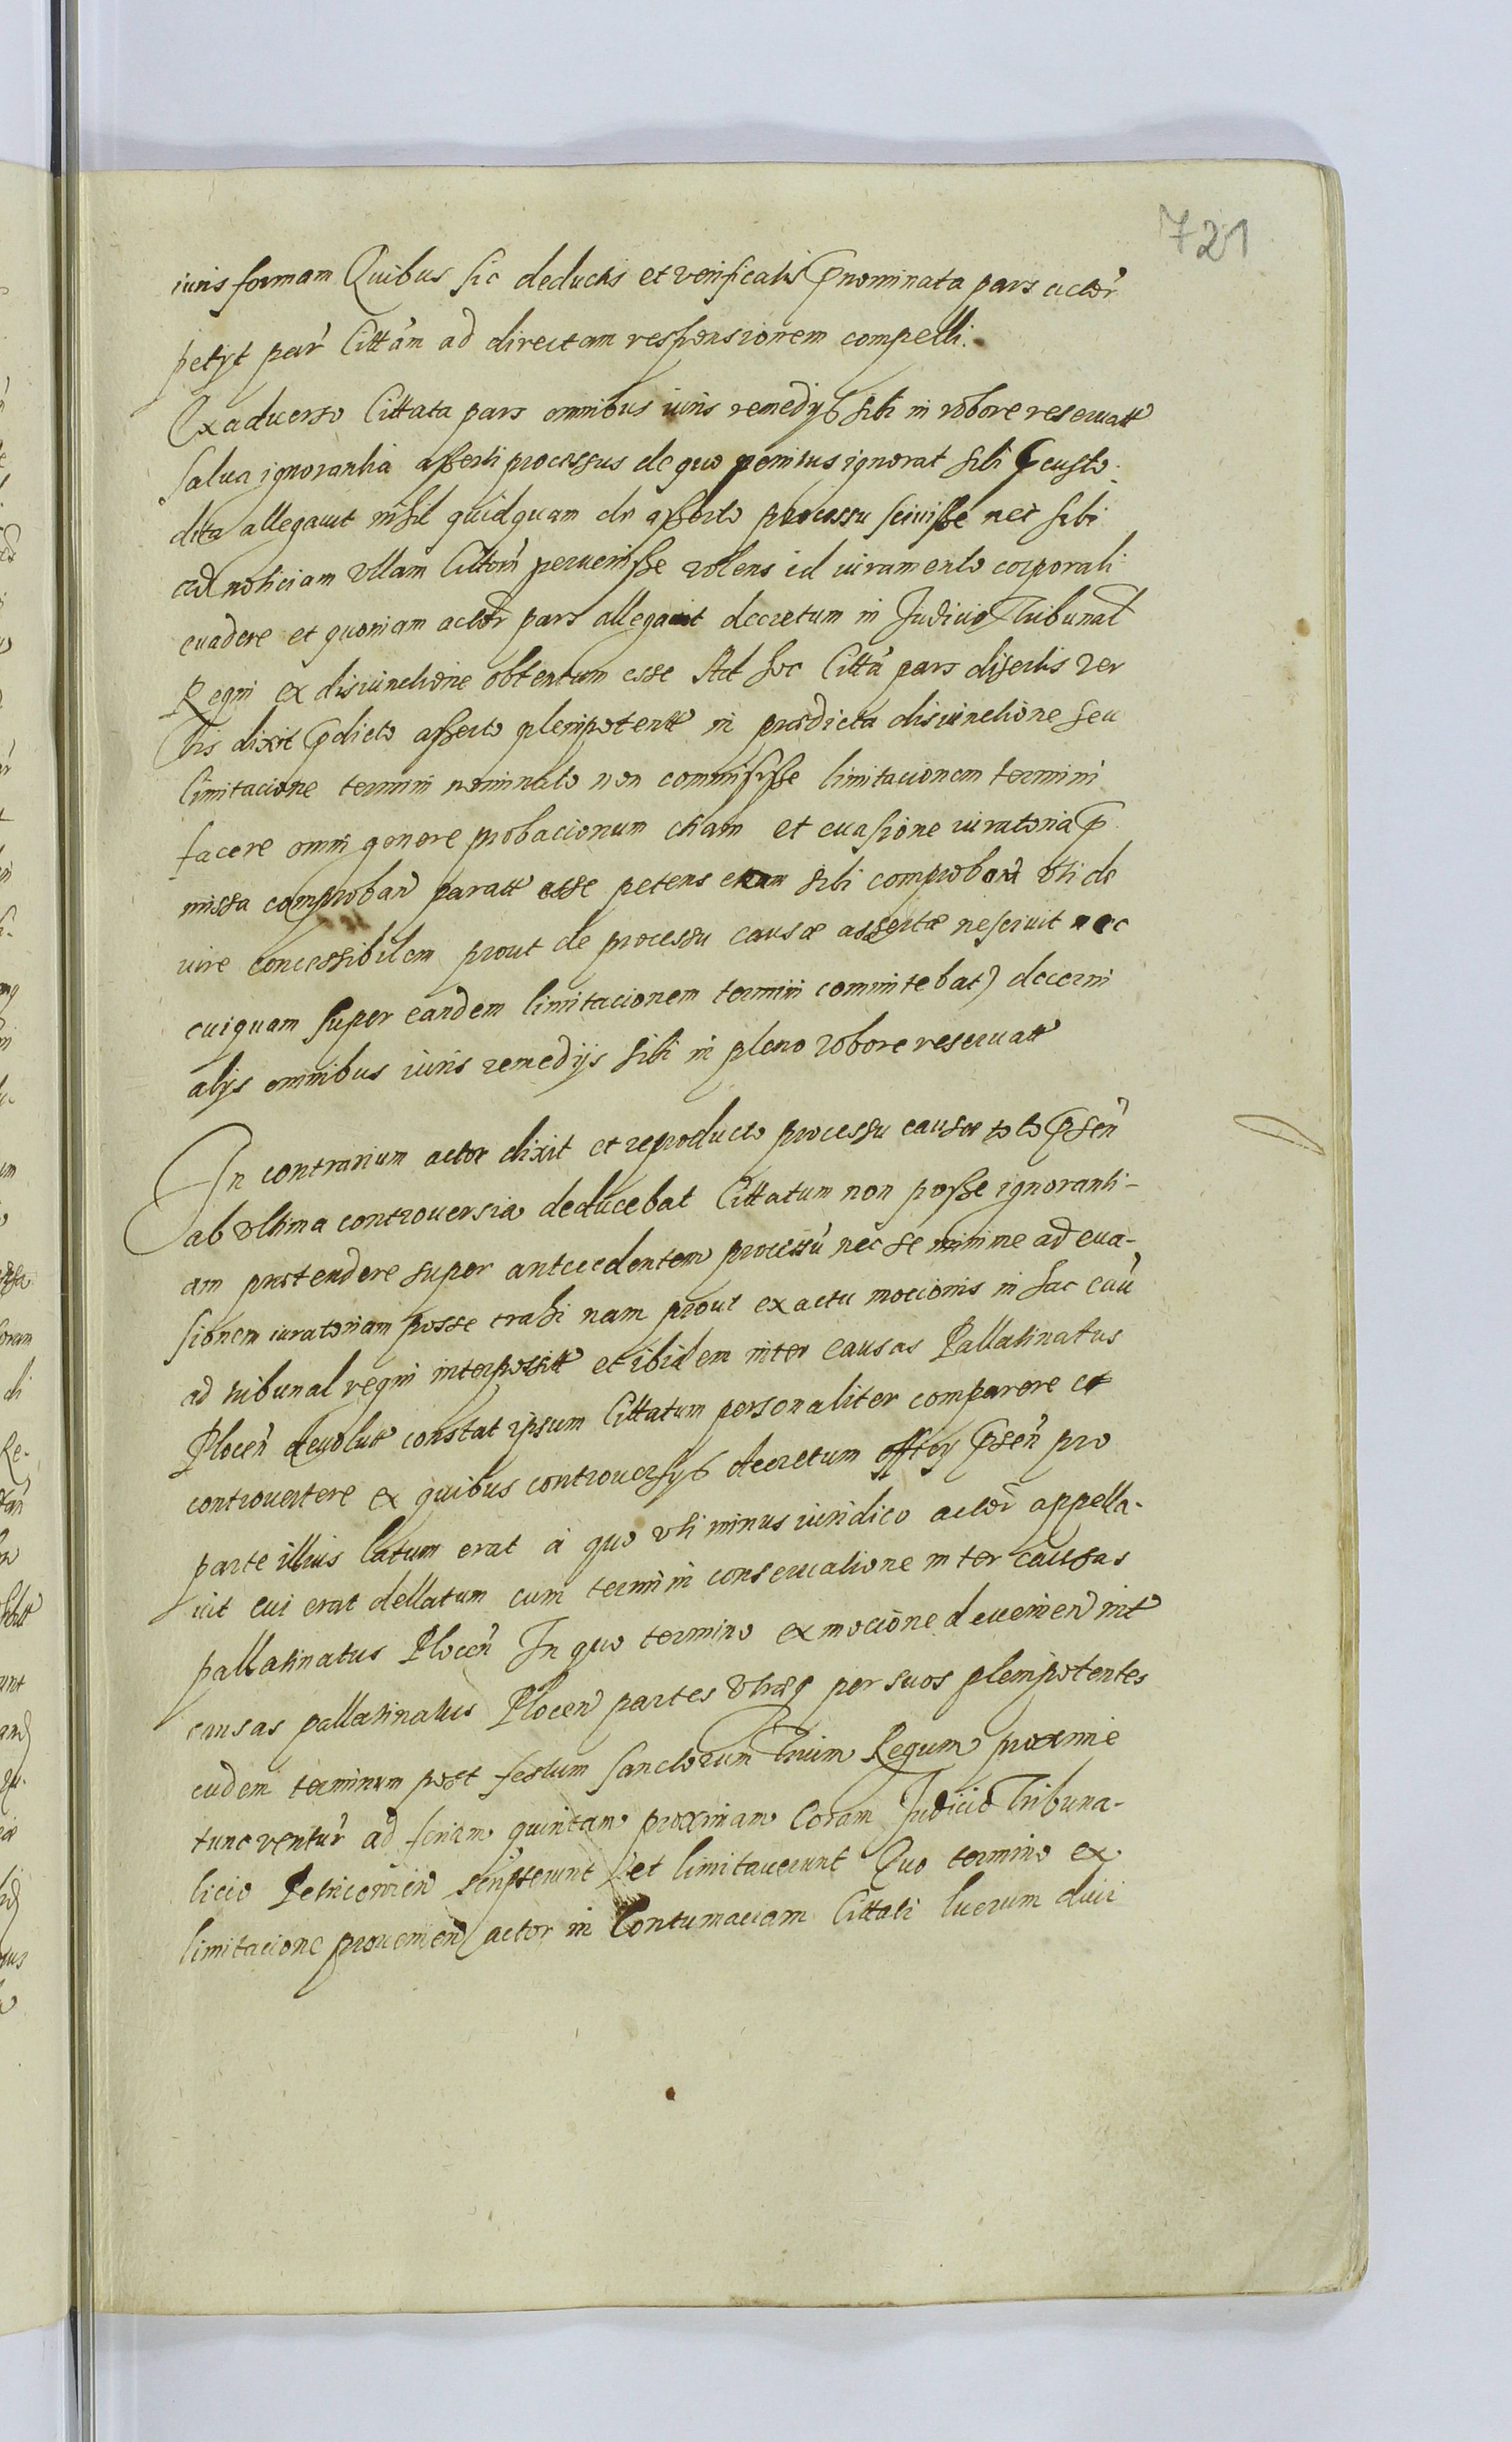 721
iuris formam Quibus sic deductis et verificatis p̱nominata pars actor̃
petyt par̃ Citt̃am ad directam responsionem compelli.
Ex aduerso Cittata pars omnibus iuris remedijs sibi in robore reseruatt̃
salua ignorantia asserti processus de quo penitus ignorat sibi p̱custo-
dita allegauit nihil quidquam de asserto processu sciuisse nec sibi
ad noticiam vllam Cittom̃ peruenisse volens id iuramento corporali
euadere et quoniam actor̃ pars allegauit decretum in Judicio Tribunal̃
Regni ex disiunctione obtentum esse Ad hoc Citt̃a pars disertis ver
bis dixit p̱dicto asserto plenipotentt̃ in prædicta disiunctione seu
limitacione termini nominato non commisisse limitacionem termini
facere omni genere probacionum etiam et euasione iuratoria p̱
missa comproban̄ paratt̃ esse petens etiam sibi comproban̄ vti de
iure concessibilem prout de processu causæ assertæ nesciuit nec
cuiquam super eandem limitacionem termini comittebat) decerni
alijs omnibus iuris remedijs sibi in pleno robore reseruatt̃
In contrarium actor dixit et reproducto processu causæ toto p̱sen̄
ab vltima controuersia deducebat Cittatum non posse ignoranti-
am prætendere super antecedentem processũ nec se minime ad eua-
sionem iuratoriam posse trahi nam prout ex actu mocionis in hac caũ
ad tribunal regni interpositt̃ et ibidem inter causas Pallatinatus
Plocen̄ deuolutt̃ constat ipsum Cittatum personaliter comparere et
controuertere ex quibus controuersijs decretum offi͠ j p̱sen̄ pro
parte illius latum erat à quo vti minus iuridico actor̃ appella-
uit cui erat dellatum cum termini conseruatione inter causas
pallatinatus Plocen̄ In quo termino ex mocione deuenien̄ int̃
causas pallatinatus Plocen̄ partes vtræq̃ per suos plenipotentes
eudem terminum post festum Sanctorum Trium Regum proxime
tunc ventur̃ ad feriam quintam proximam Coram Judicio Tribuna-
licio Petricouien̄ scripserunt et limitauerunt Quo termino ex
limitacione prouenien̄ actor in Contumaciam Cittati lucrum duci